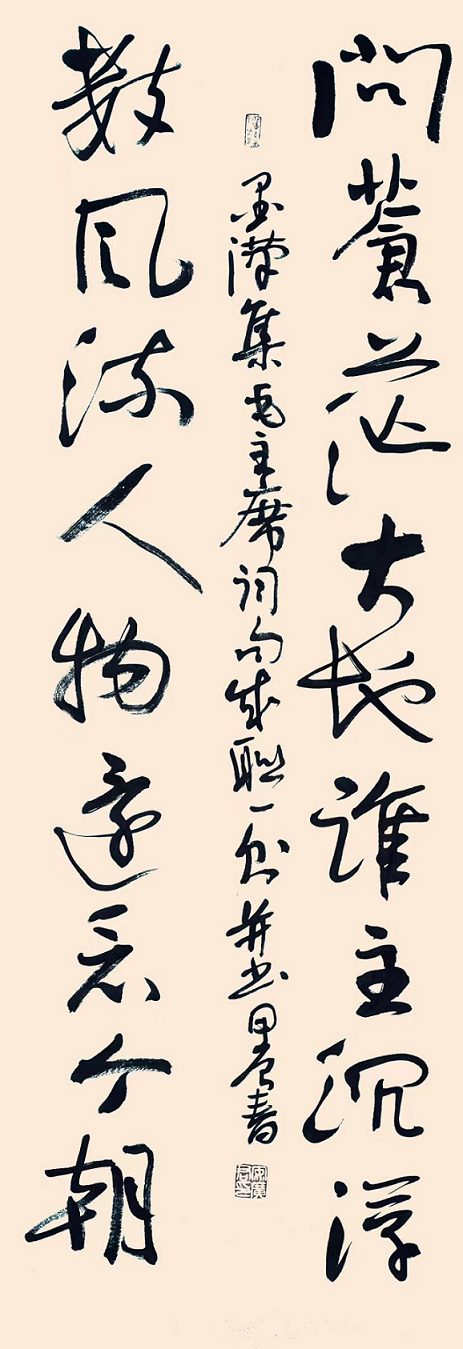 問蒼茫大地誰主沉浮
數風流人物還看今朝
墨漢集毛主席詞句成聯一則并书甲辰春